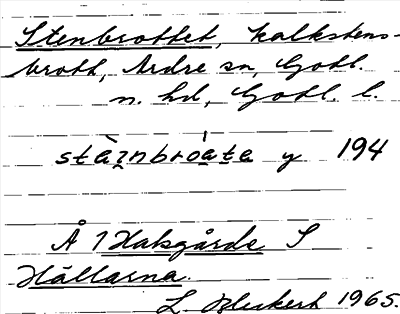 Stenbrottet, kalkstens-
brott, Ardre sn, Gotl.
n. hd, Gotl. l.
stäi̯nbróata y 194
Å 1 Halsgårde S
Hällarna.
L. 1965.